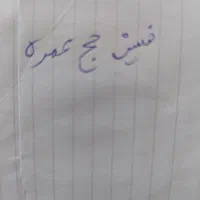 فيش حج عمره